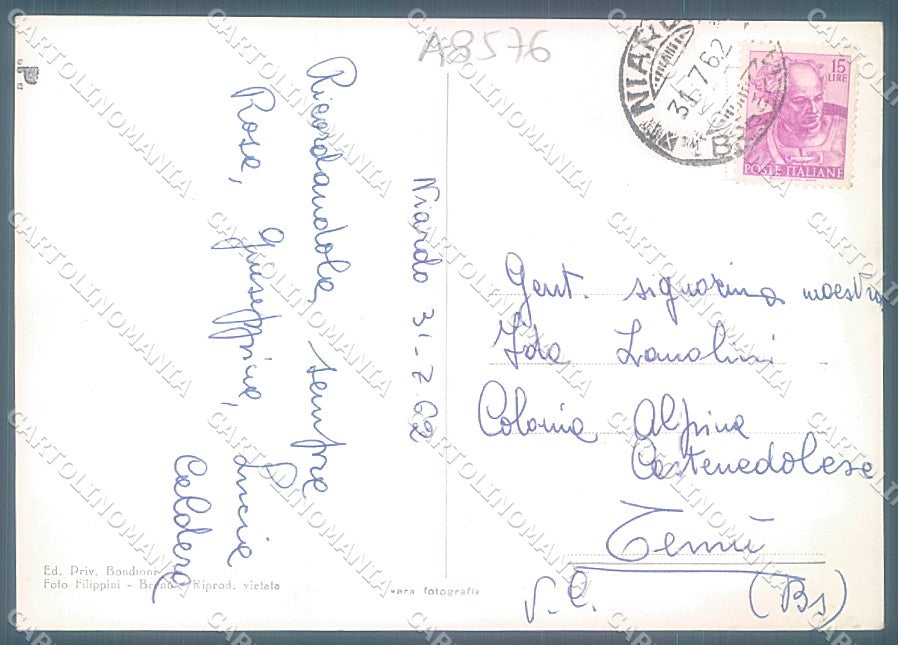 A8576
NIARDO
31.7.62
(BS)
15
LIRE
POSTE ITALIANE
Niardo 31-7-62
Ricordandola sempre
Rosa, Giuseppina, Lucia
Caldera
Gent. signorina maestra
Ida Lanolini
Colonia Alpina
Castenedolese
Temù
V.C. (Bs)
Ed. Priv. Bondioni
Foto Filippini - Riprod. vietata
vera fotografia
CARTOLINOMANIA